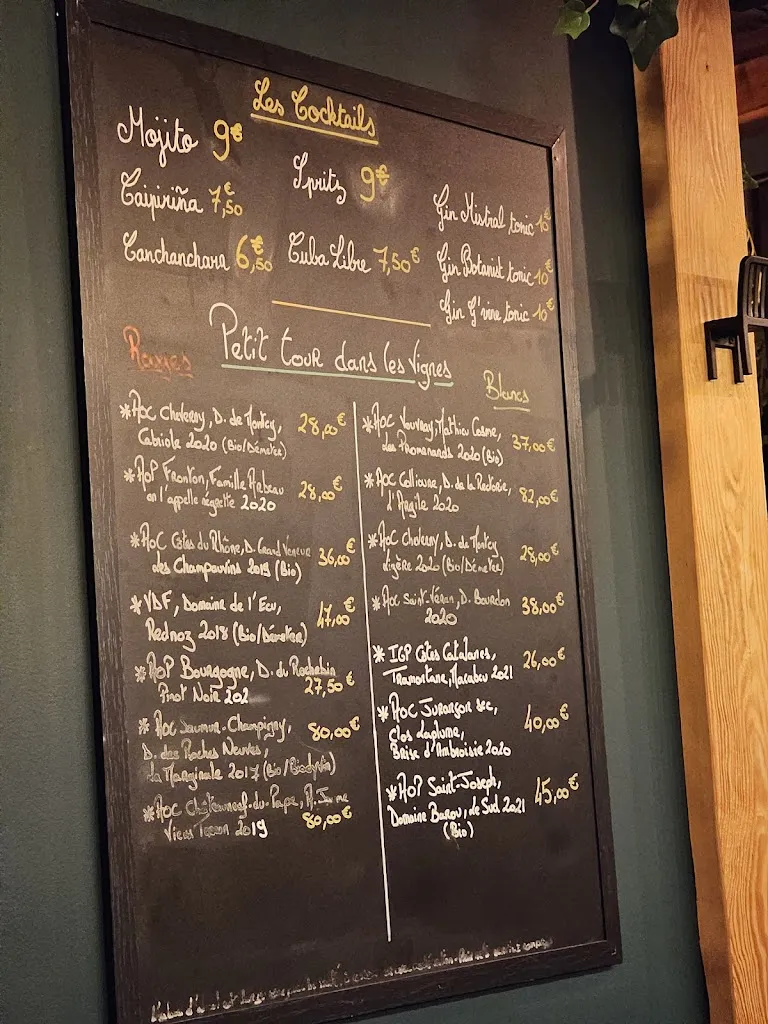 Les Cocktails
Mojito 9€
Spritz 9€
Caïpiriña 7,50€
Canchanchara 6,50€
Cuba Libre 7,50€
Gin Mistral tonic 10€
Gin Botanist tonic 10€
Gin G'vine tonic 10€
Petit tour dans les vignes
Rouges
*AOC Cheverny, D. de Montcy, 28,00€
Cabriole 2020 (Bio/Démeter)
*AOP Fronton, Famille Arbeau
on l'appelle négrette 2020 28,00€
*AOC Côtes du Rhône, D. Grand Veneur
Les Champauvins 2019 (Bio) 36,00€
*VDF, Domaine de l'Ecu, 47,00€
Rednoz 2018 (Bio/Démeter)
*AOP Bourgogne, D. du Rochebin
Pinot Noir 202 27,50€
*AOC Saumur-Champigny, 80,00€
D. des Roches Neuves,
La Marginale 2017 (Bio/Biodyvin)
*AOC Châteauneuf-du-Pape,
2019 80,00€
Blancs
*AOC Vouvray, Mathieu Cosme, 37,00€
Les Promenards 2020 (Bio)
*AOC Collioure, D. de la Rectorie, 82,00€
L'Argile 2020
*AOC Cheverny, D. de Montcy 28,00€
2020 (Bio/Démeter)
*AOC Saint-Véran, D. Bourdon 38,00€
2020
*IGP Côtes Catalanes, 26,00€
Tramontane, Macabeu 2021
*AOC Jurançon sec, 40,00€
Clos Laplume,
Brise d'Ambroisie 2020
*AOP Saint-Joseph, 45,00€
Domaine Barou, de Sud 2021
(Bio)
L'abus d'alcool est